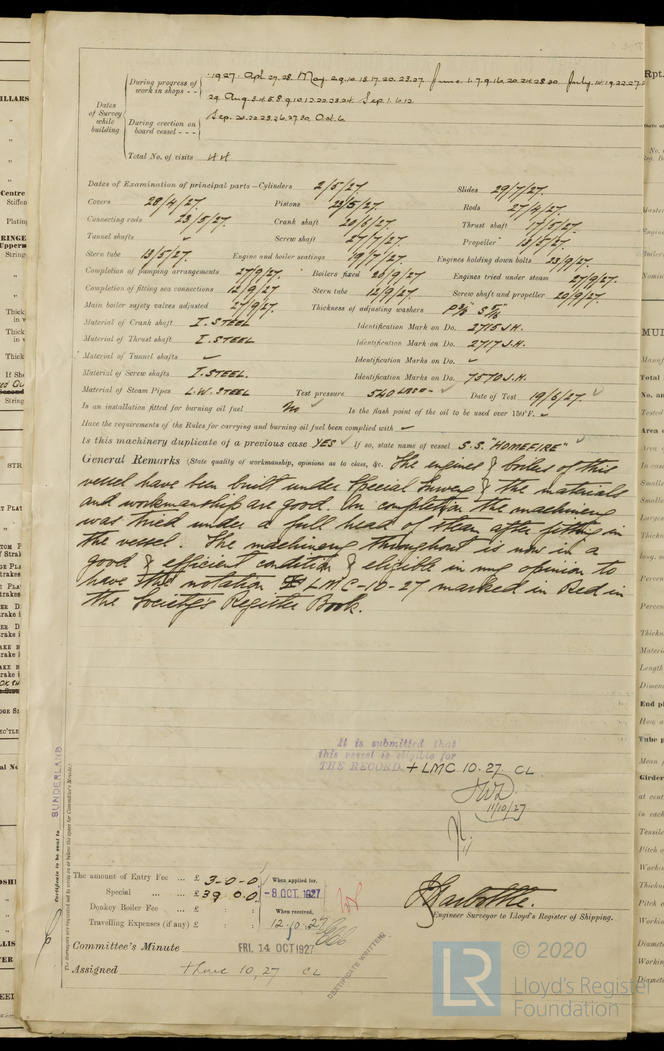 During progress of work in shops - - 1927. Apl 27.28 May 2.9.10.13.17.20.23.27 June 1.7.9.16.20.24.28.30 July 14.19.22.27.
29 Aug. 3.4.5.8.9.10.12.22.23.24. Sep. 1.6.12
Dates of Survey while building
During erection on board vessel - - - Sep. 20.22.23.26.27.30 Oct. 6
Total No. of visits 44
Dates of Examination of principal parts—Cylinders 2/5/27. Slides 29/7/27.
Covers 28/4/27. Pistons 23/5/27. Rods 27/4/27.
Connecting rods 23/5/27. Crank shaft 20/6/27. Thrust shaft 17/5/27.
Tunnel shafts ✓ Screw shaft 27/7/27. Propeller 13/5/27.
Stern tube 13/5/27. Engine and boiler seatings 19/7/27. Engines holding down bolts 23/9/27.
Completion of pumping arrangements 27/9/27. Boilers fixed 20/9/27 Engines tried under steam 27/9/27.
Completion of fitting sea connections 12/9/27 Stern tube 12/9/27. Screw shaft and propeller 20/9/27.
Main boiler safety valves adjusted 27/9/27. Thickness of adjusting washers
Material of Crank shaft I. STEEL Identification Mark on Do. 2715 J.H.
Material of Thrust shaft I. STEEL Identification Mark on Do. 2717 J.H.
Material of Tunnel shafts ✓ Identification Marks on Do. ✓
Material of Screw shafts I. STEEL. Identification Marks on Do. 7570 J.H.
Material of Steam Pipes L.W. STEEL Test pressure 540 LBS Date of Test 19/6/27. ✓
Is an installation fitted for burning oil fuel No ✓ Is the flash point of the oil to be used over 150°F. ✓
Have the requirements of the Rules for carrying and burning oil fuel been complied with ✓
Is this machinery duplicate of a previous case YES ✓ If so, state name of vessel S.S. "HOMEFIRE" ✓
General Remarks (State quality of workmanship, opinions as to class, &c. The engines & boilers of this
vessel have been built under Special Survey & the materials
and workmanship are good. On completion the machinery
was tried under a full head of steam after fitting in
the vessel. The machinery throughout is now in a
good & efficient condition & eligible in my opinion to
have the notation LMC-10-27 marked in Red in
the Society's Register Book.
It is submitted that
this vessel is eligible for
THE RECORD. + LMC 10.27 CL
11/10/27
Certificate to be sent to SUNDERLAND
The amount of Entry Fee ... £ 3-0-0 When applied for,
Special ... ... £ 39.0.0 -8 OCT. 1927
Donkey Boiler Fee ... £ : : When received,
Travelling Expenses (if any) £ : : 12.10.27
Engineer Surveyor to Lloyd's Register of Shipping.
Committee's Minute FRI. 14 OCT 1927
Assigned + LMC 10,27 CL
CERTIFICATE WRITTEN
LR © 2020
Lloyd's Register
Foundation